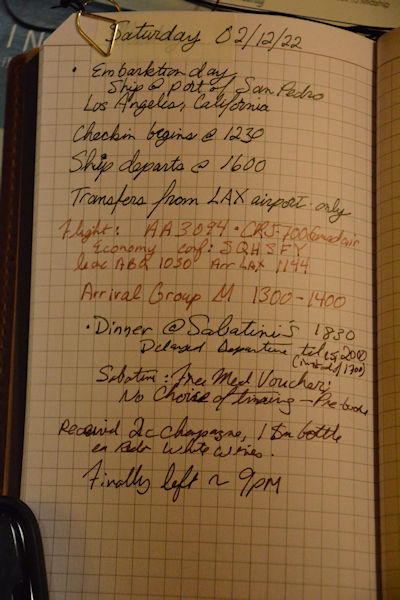 Saturday 02/12/22
• Embarktion day
Ship @ port of San Pedro
Los Angeles, California
Checkin begins @ 1230
Ship departs @ 1600
Transfers from LAX airport only
Flight: AA3094 • CRJ-700 Canadair
Economy conf: SQHSFY
leave ABQ 1050 Arr LAX 1144
Arrival Group M 1300-1400
• Dinner @ Sabatini's 1830
Delayed Departure til 2000
(instead of 1700)
Sabatini: Free Med Voucher;
No Choice of timing - Pre
Received 2 Champagne, 1 Sm bottle
ea Red White wines.
Finally left ~ 9PM